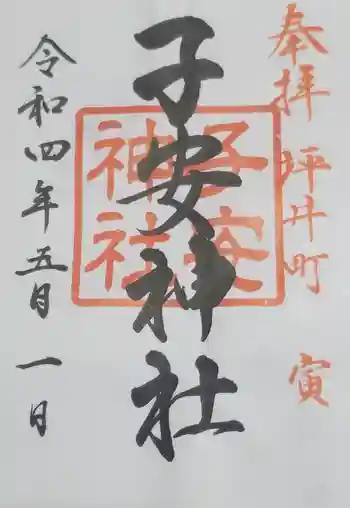 奉拝 坪井町 寅
子安神社
子安神社
令和四年五月一日